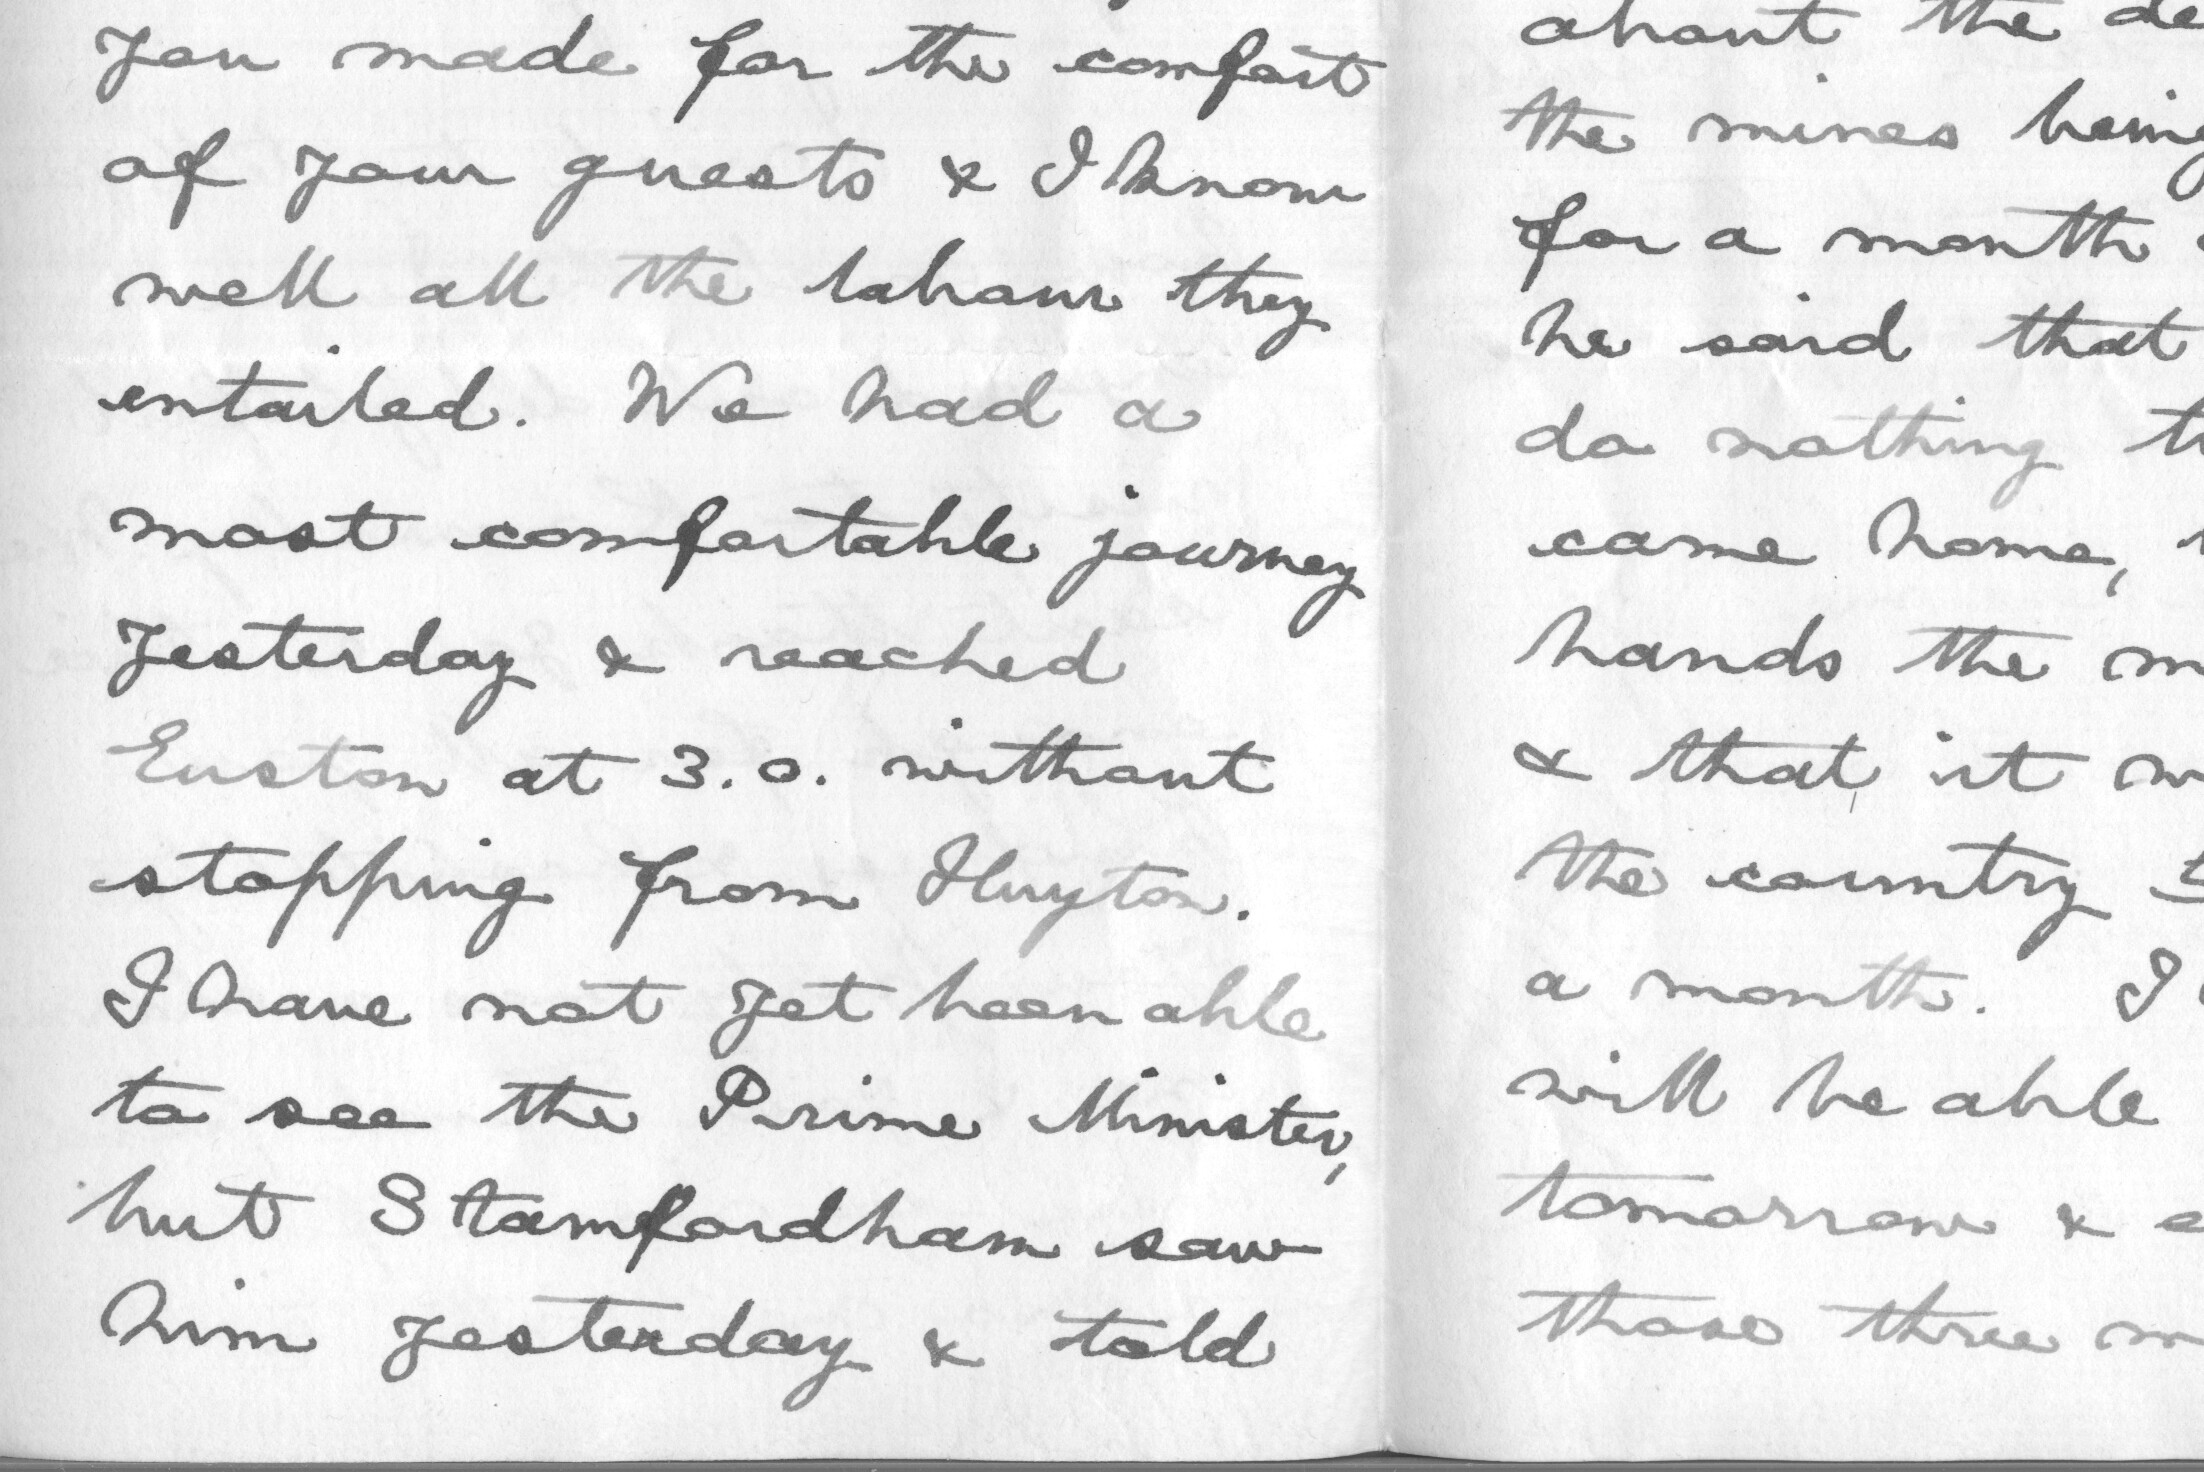 you made for the comfort
of your guests & I know
well all the labour they
entailed. We had a
most comfortable journey
yesterday & reached
Euston at 3.0. without
stopping from Huyton.
I have not yet been able
to see the Prime Minister,
but Stamfordham saw
him yesterday & told
about the de
the mines being
for a month
he said that
do nothing t
came home,
hands the m
& that it w
the country
a month. I
will be able
tomorrow &
those three m